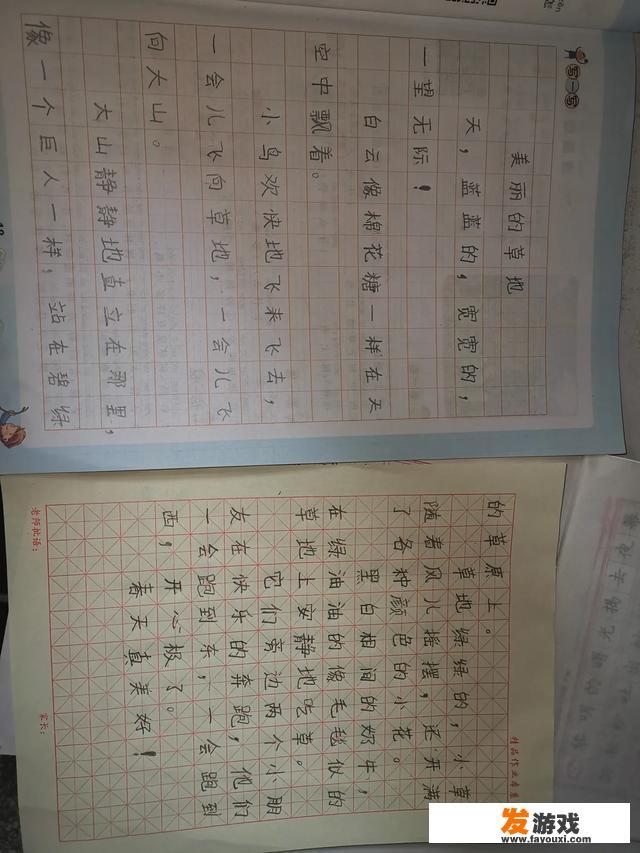 写一写
美丽的草地
天，蓝蓝的，宽宽的，
一望无际！
白云像棉花糖一样在天
空中飘着。
小鸟欢快地飞来飞去，
一会儿飞向草地，一会儿飞
向大山。
大山静静地直立在那里，
像一个巨人一样，站在碧绿
精品作业本
的草原上。
草地绿绿的，小草
随着风儿摇摆，还开满
了各种颜色的小花。
黑白相间的奶牛，
在绿油油的像毛毯似的
草地上安静地吃草。
它们旁边两个小朋
友在快乐的奔跑，他们
一会跑到东，一会跑到
西，开心极了。
春天真美好！
老师批语：
家长：
发游戏
www.fayouxi.com